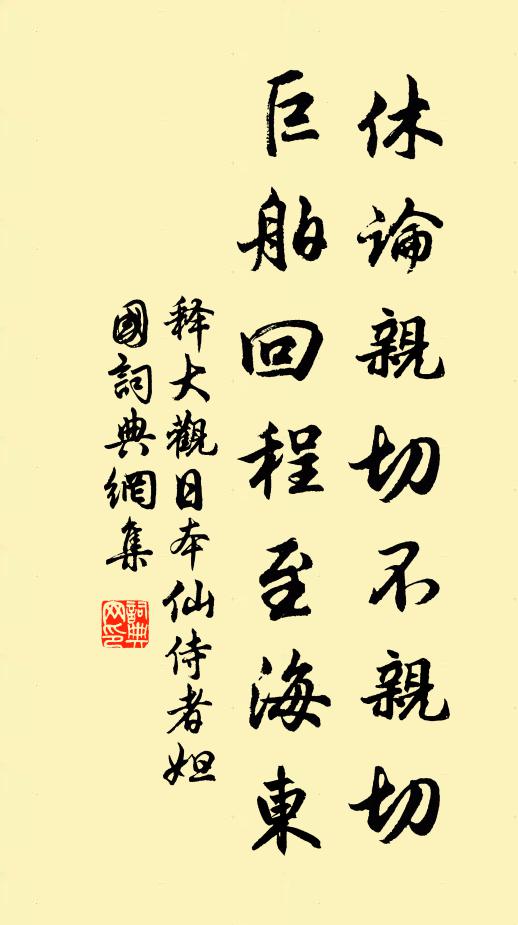 休論親切不親切
巨舶回程至海東
释大觀日本仙侍者妲
國詞典網集
詞典
网印